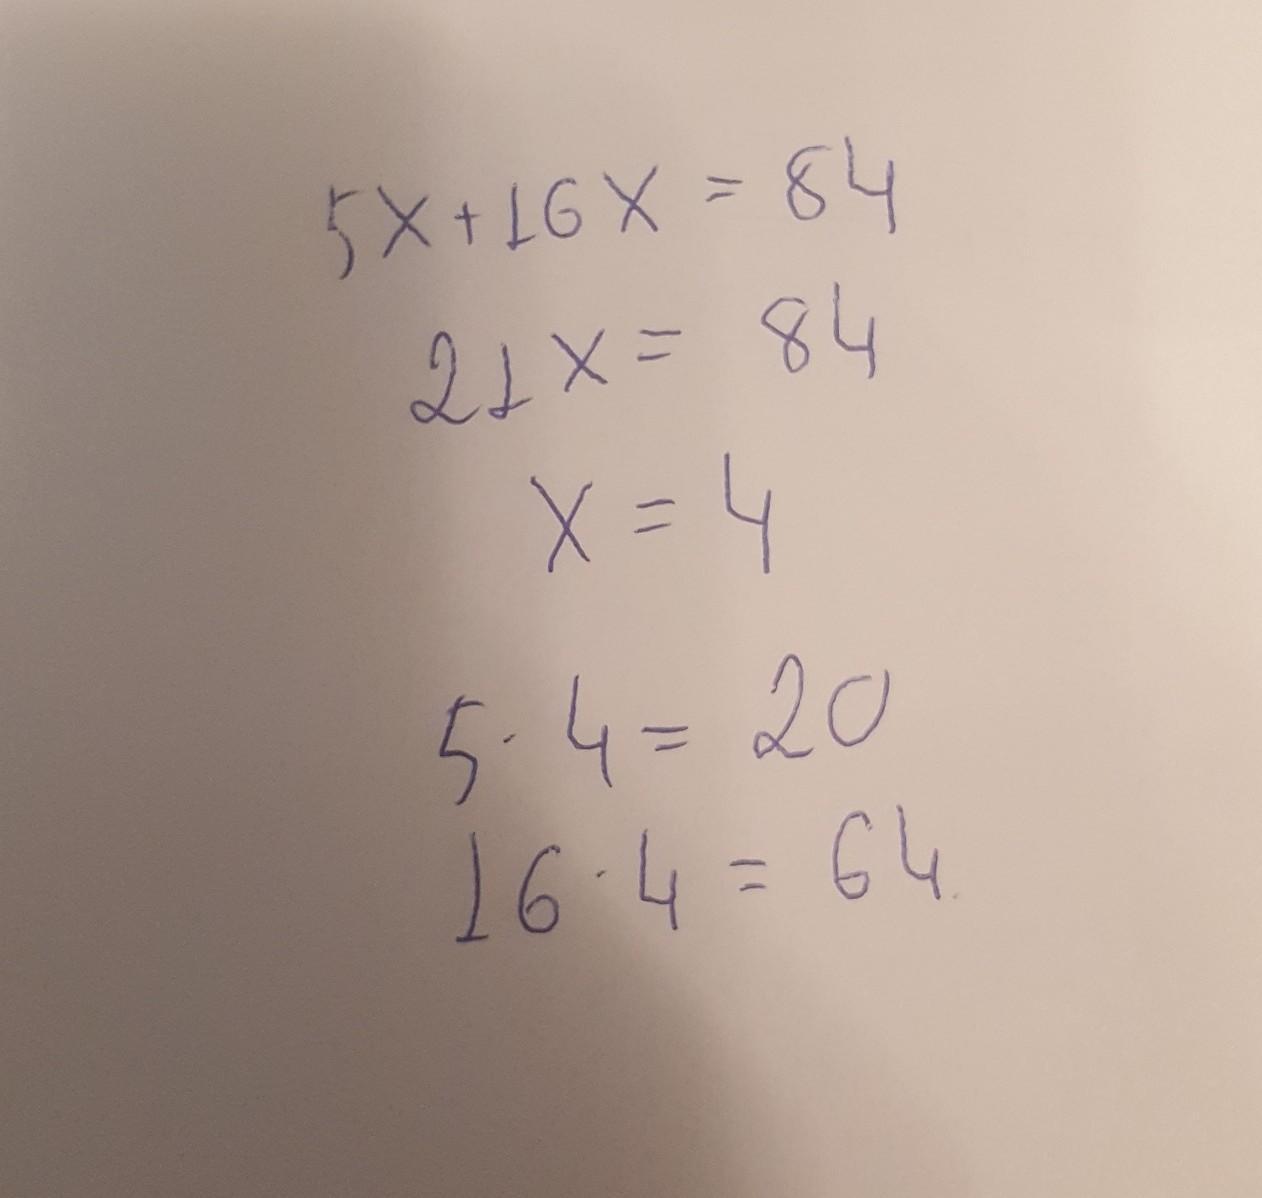 5x+16x = 84
21x = 84
x = 4
5· 4 = 20
16·4 = 64